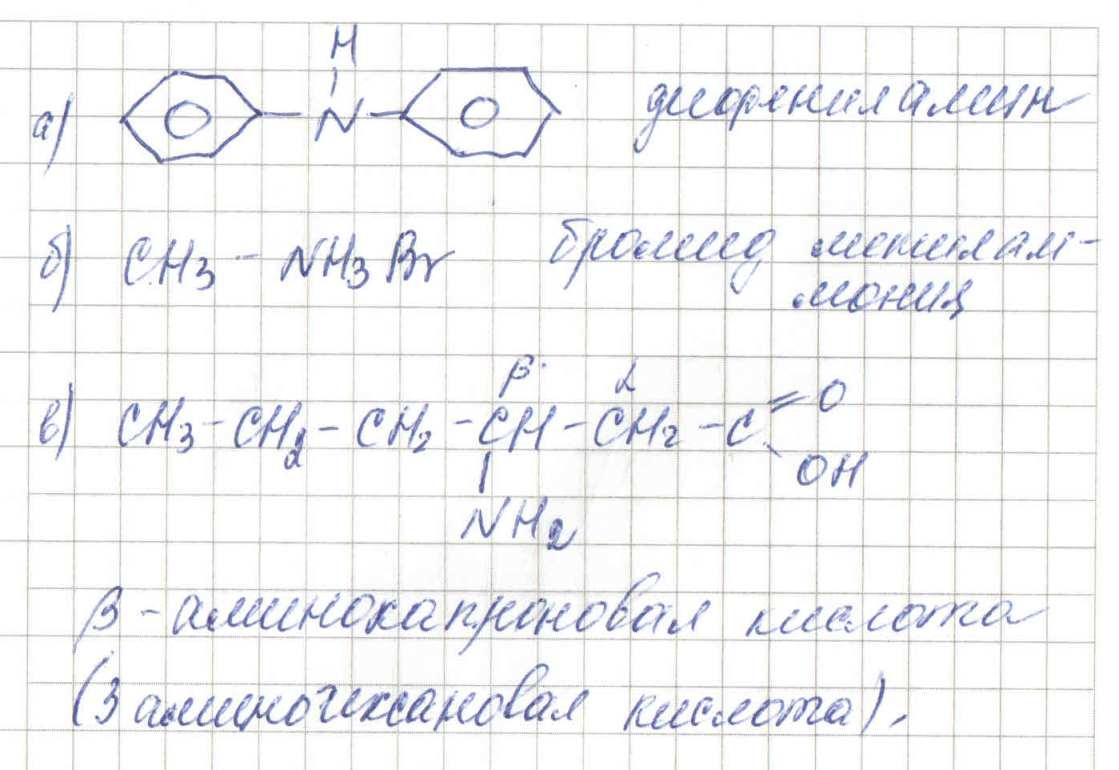 а) H N дифениламин
б) CH3 - NH3Br бромид метилам-
мония
β α
в) CH3 - CH2 - CH2 - CH - CH2 - C = O
OH
NH2
β - аминокапроновая кислота
(3 аминогексановая кислота).